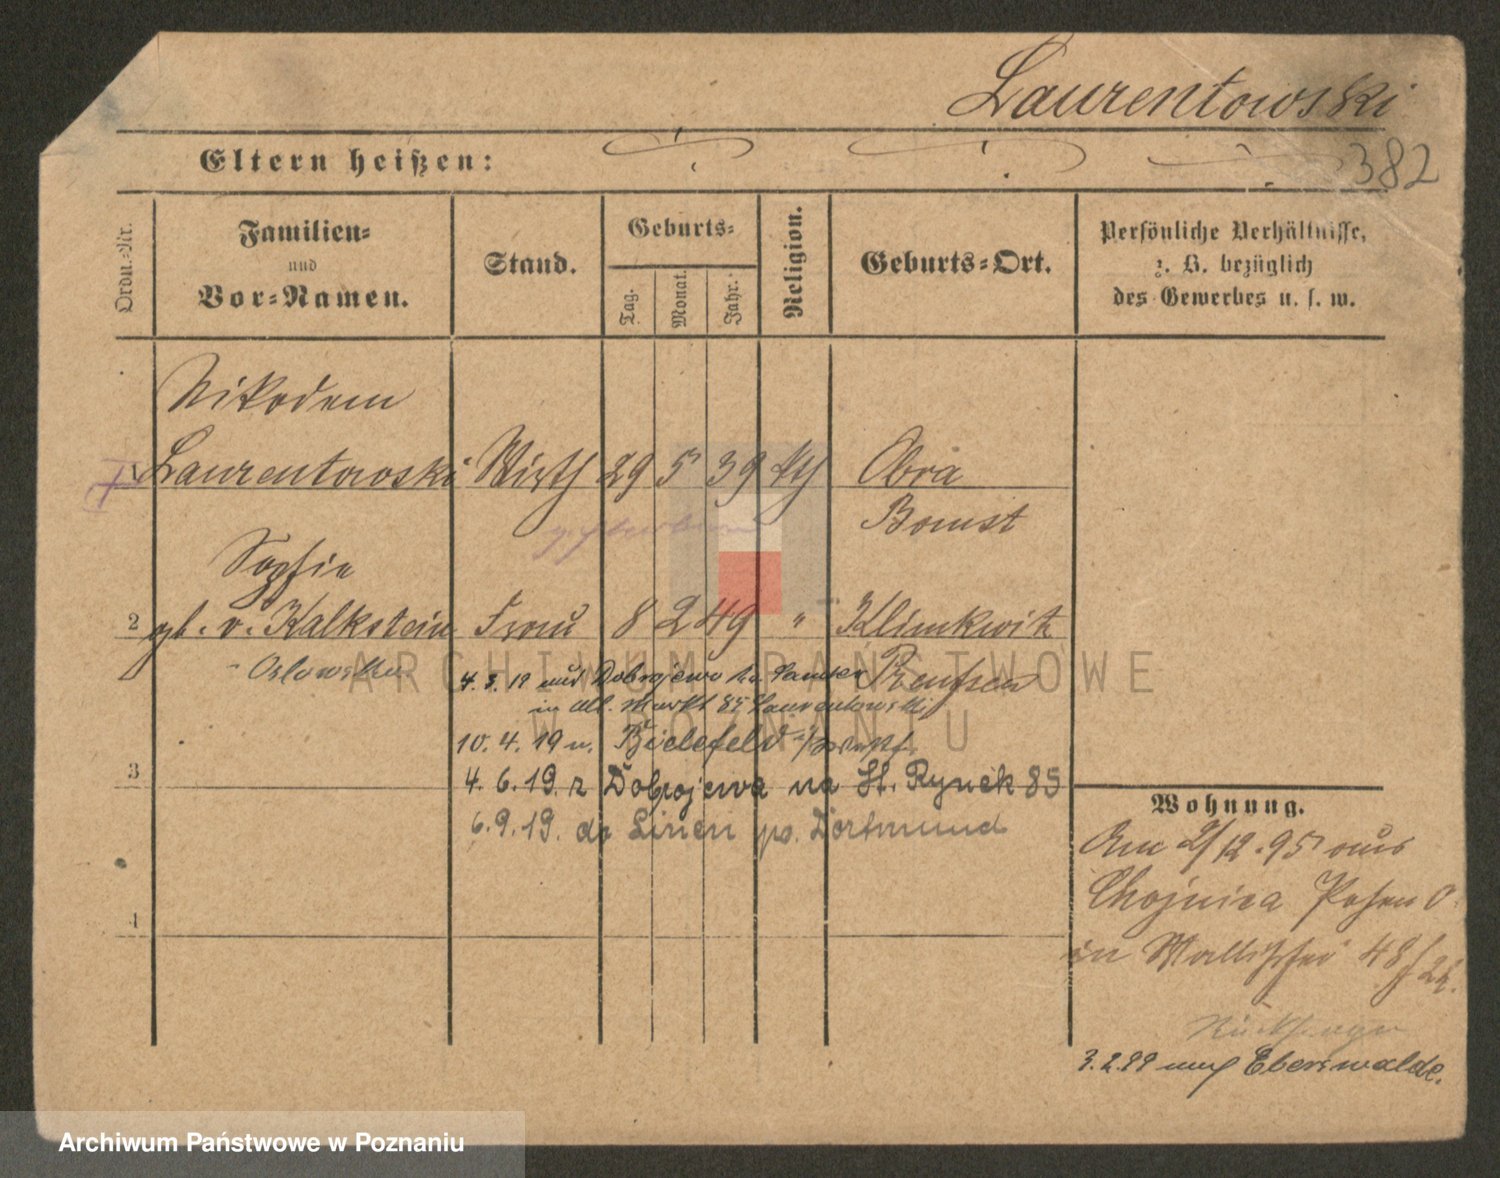 Laurentowski
382
Eltern heißen:
Ordn.-Nr.
Familien-
und
Vor-Namen.
Stand.
Geburts-
Tag.
Monat.
Jahr.
Religion.
Geburts-Ort.
Persönliche Verhältnisse,
z. B. bezüglich
des Gewerbes u. s. w.
Nikodem
1 Laurentowski Wirth 29 5 39 kth Obra
Bomst
gestorben
Sophie
2 gb. v. Kalkstein Frau 8 2 49 " Klimkwitz
Oslowska
Preußen
4. 3. 19 aus Dobrojewo Kr. Samter
in Alt. Markt 85 Laurentowski
10. 4. 19 n. Bielefeld
3
4. 6. 19. z Dobrojewa na St. Rynek 85
6. 9. 19. do Linen po. Dortmund
4
Wohnung.
Am 2/12. 95 aus
Chojnica Posen O.
in Wallischei 48
3. 2. 99 nach Eberswalde.
ARCHIWUM PAŃSTWOWE
W POZNANIU
Archiwum Państwowe w Poznaniu